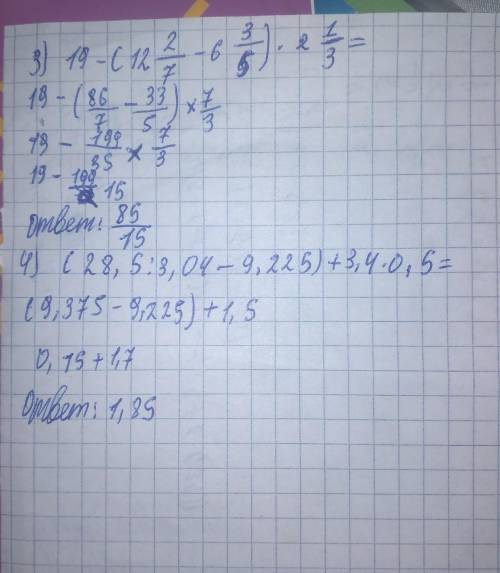 3) 19 - (12 2/7 - 6 3/5) · 2 1/3 =
19 - (86/7 - 33/5) × 7/3
19 - 199/35 × 7/3
19 - 199/15
ответ: 85/15
4) (28,5 : 3,04 - 9,225) + 3,4 · 0,5 =
(9,375 - 9,225) + 1,5
0,15 + 1,7
ответ: 1,85